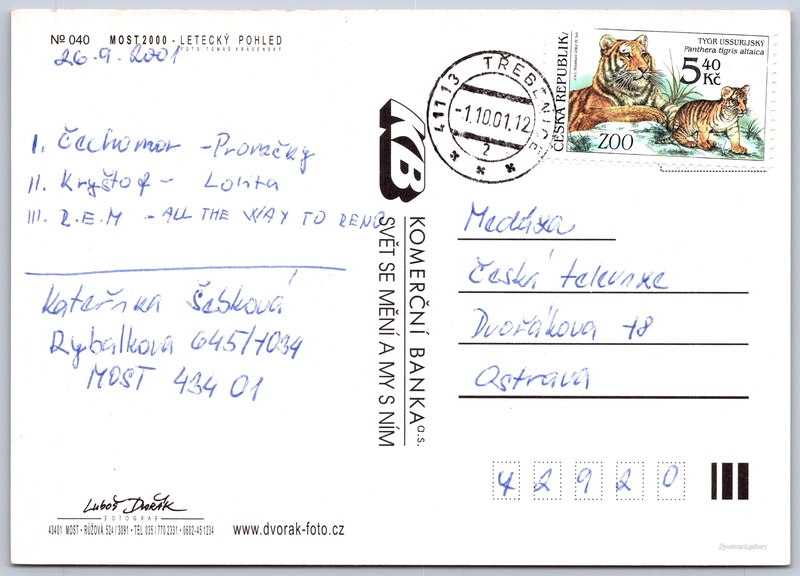 Nº 040 MOST 2000 - LETECKÝ POHLED
FOTO: TOMÁŠ KRÁSENSKÝ
26.9.2001
I. Čechomor - Proměny
II. Kryštof - Lolita
III. R.E.M - ALL THE WAY TO RENO
Kateřina Šebková
Rybalkova 645/1034
MOST 434 01
Luboš Dvořák
FOTOGRAF
43401 MOST • RŮŽOVÁ 524/3091 • TEL 035/770 2331 • 0602-45 1234
www.dvorak-foto.cz
KB
KOMERČNÍ BANKA a.s.
SVĚT SE MĚNÍ A MY S NÍM
411 13 TŘEBENICE
-1.10.01.12
2
ČESKÁ REPUBLIKA
TYGR USSURIJSKÝ
Panthera tigris altaica
5,40 Kč
ZOO
Medúza
Česká televize
Dvořákova 18
Ostrava
42920